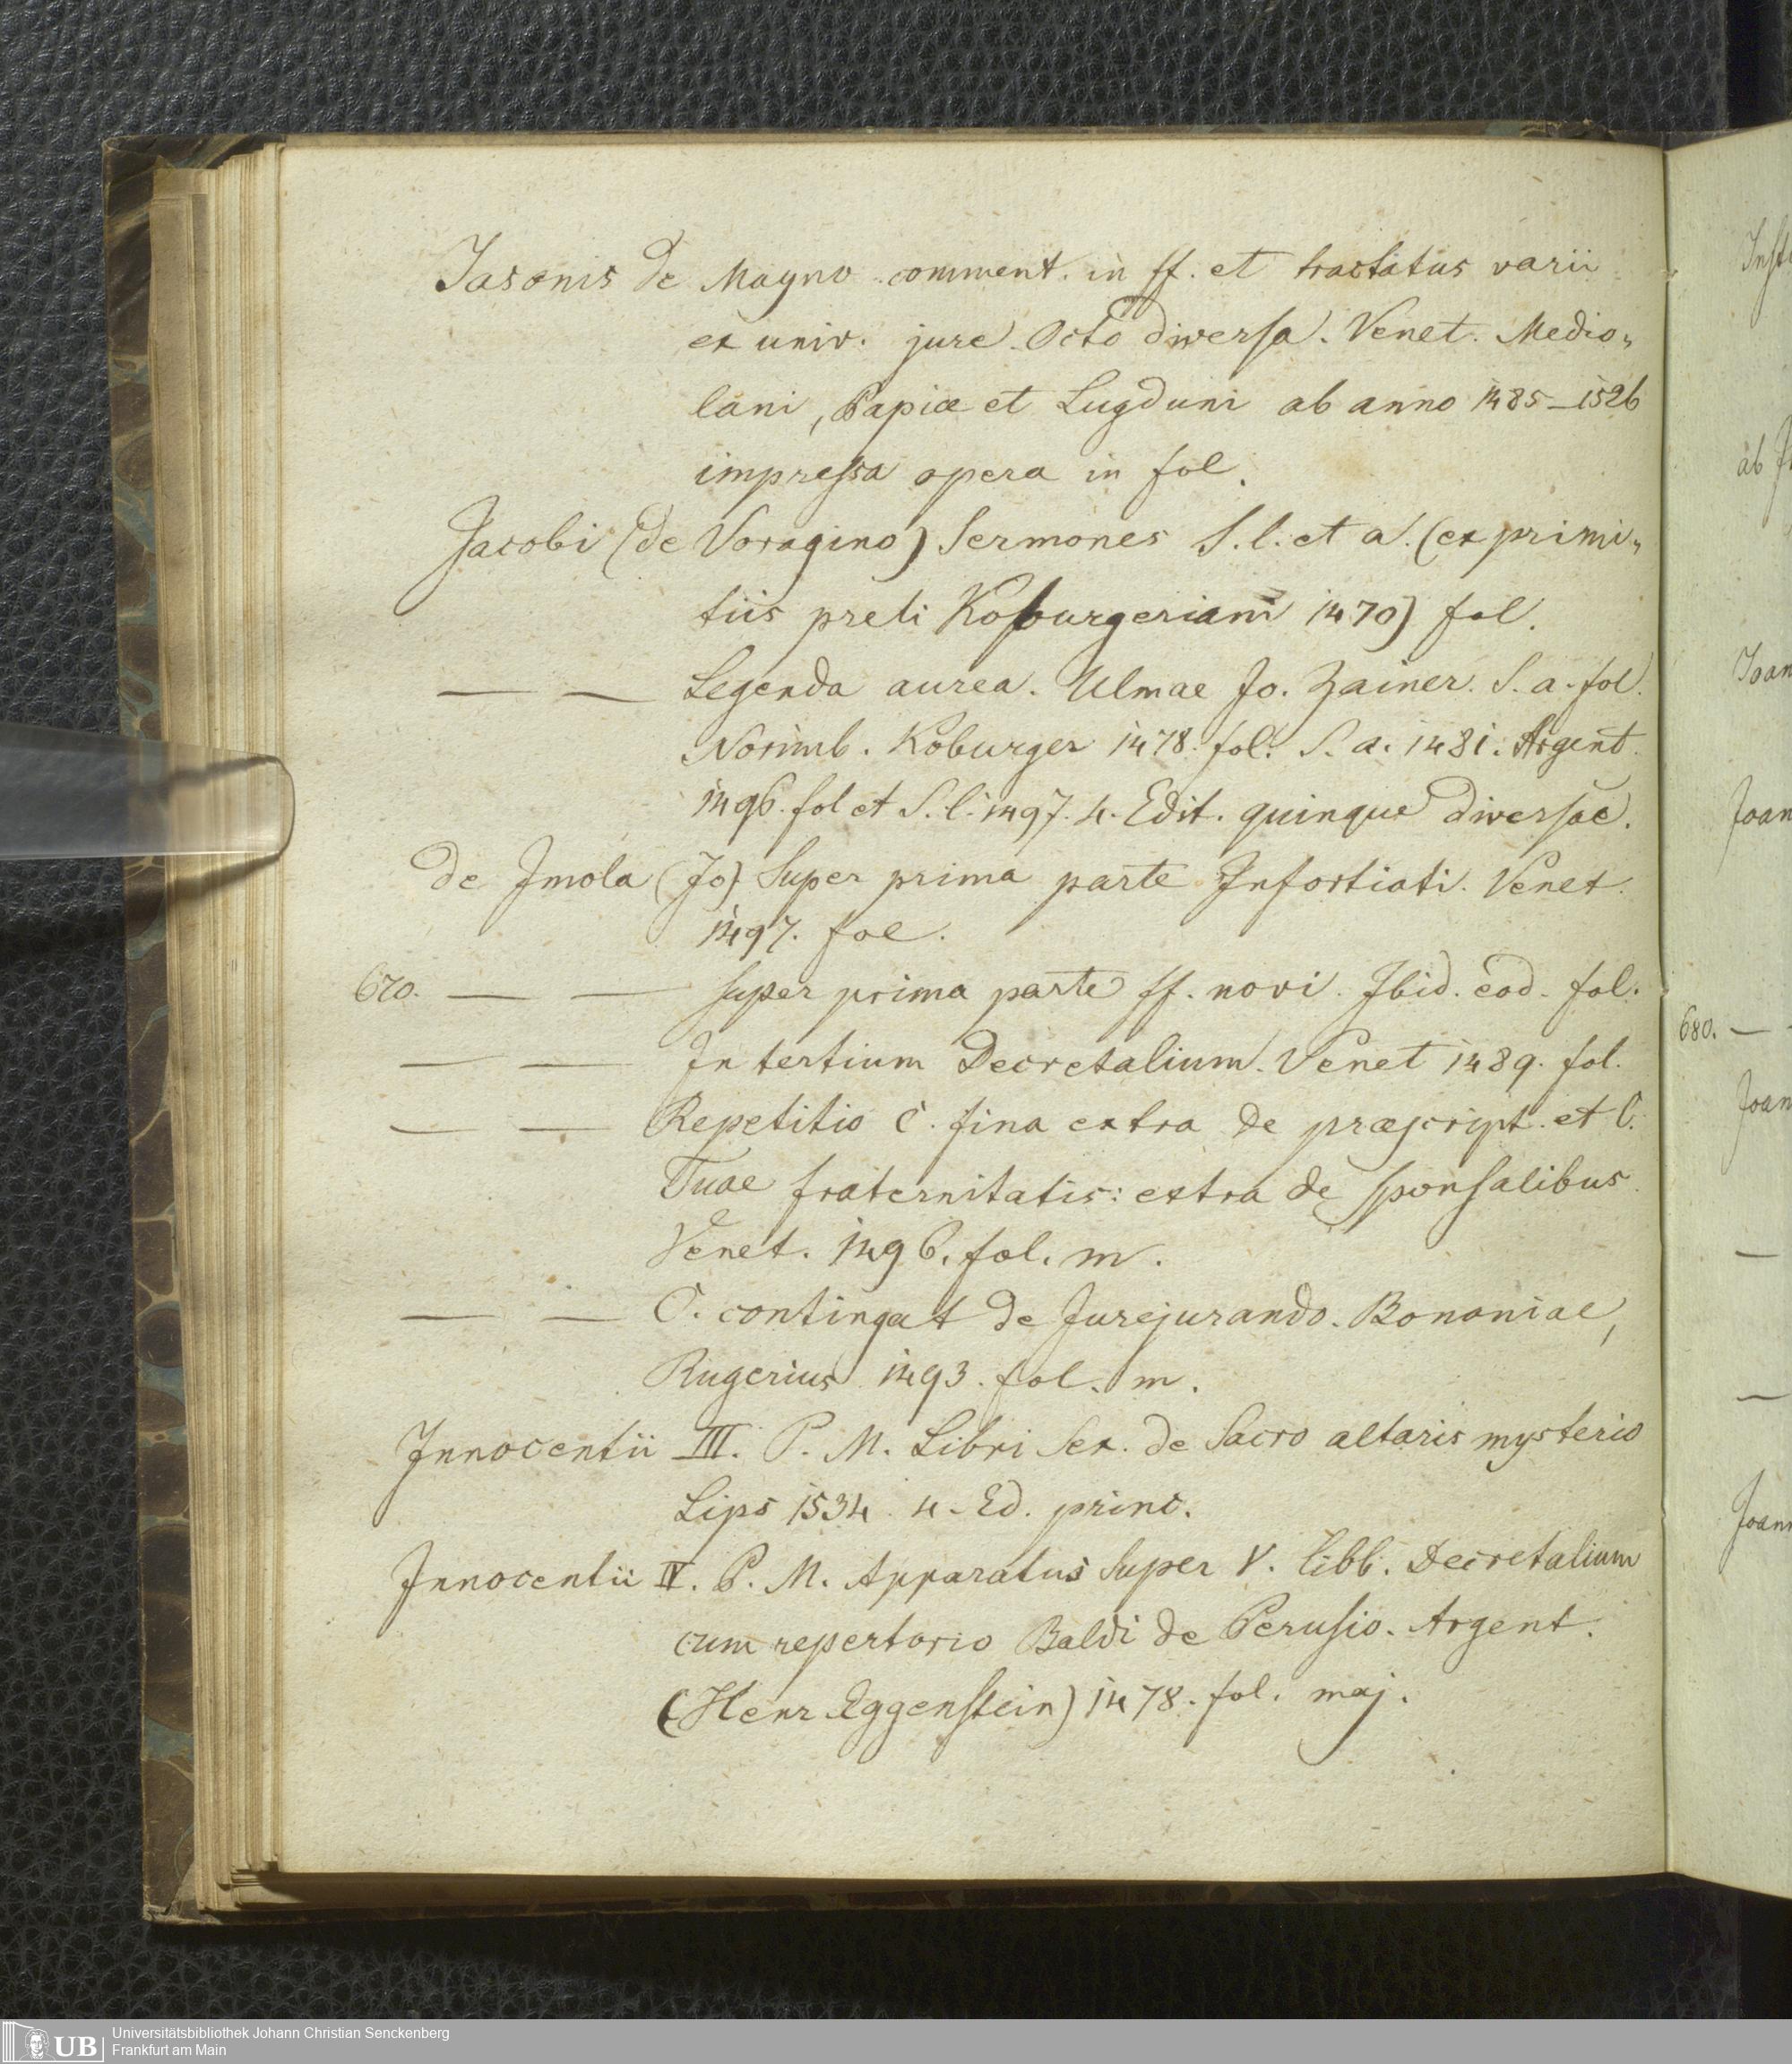 Jasonis de Magno comment. in ff. et tractatus varii
ex univ. jure. Octo diversa. Venet. Medio„
lani, Papiæ et Lugduni ab anno 1485–1526
impressa opera in fol.
Jacobi (de Voragino) Sermones S. l. et a. (ex primi„
tiis preli Koburgeriani 1470) fol.
— — Legenda aurea. Ulmae Jo. Zainer. S. a. fol.
Norimb. Koburger 1478. fol. S. a. 1481. Argent.
1496. fol et S. l. 1497. 4. Edit. quinque diversae.
de Imola (Jo) Super prima parte Infortiati. Venet.
1497. fol.
670. — — super prima parte ff. novi. Ibid. eod. fol.
— — In tertium Decretalium. Venet 1489. fol.
— — Repetitio C. fina extra de præscript. et C.
Tuae fraternitatis: extra de sponsalibus
Venet. 1496. fol. m.
— — C. contingat de Jurejurando. Bononiae,
Rugerius 1493. fol. m.
Innocentii III. P. M. Libri Sex. de Sacro altaris mysterio
Lips 1534. 4. Ed. princ.
Innocentii IV. P. M. Apparatus super V. libb. Decretalium
cum repertorio Baldi de Perusio. Argent.
(Henr Eggenstein) 1478. fol. maj.
680. —
Universitätsbibliothek Johann Christian Senckenberg
Frankfurt am Main
UB